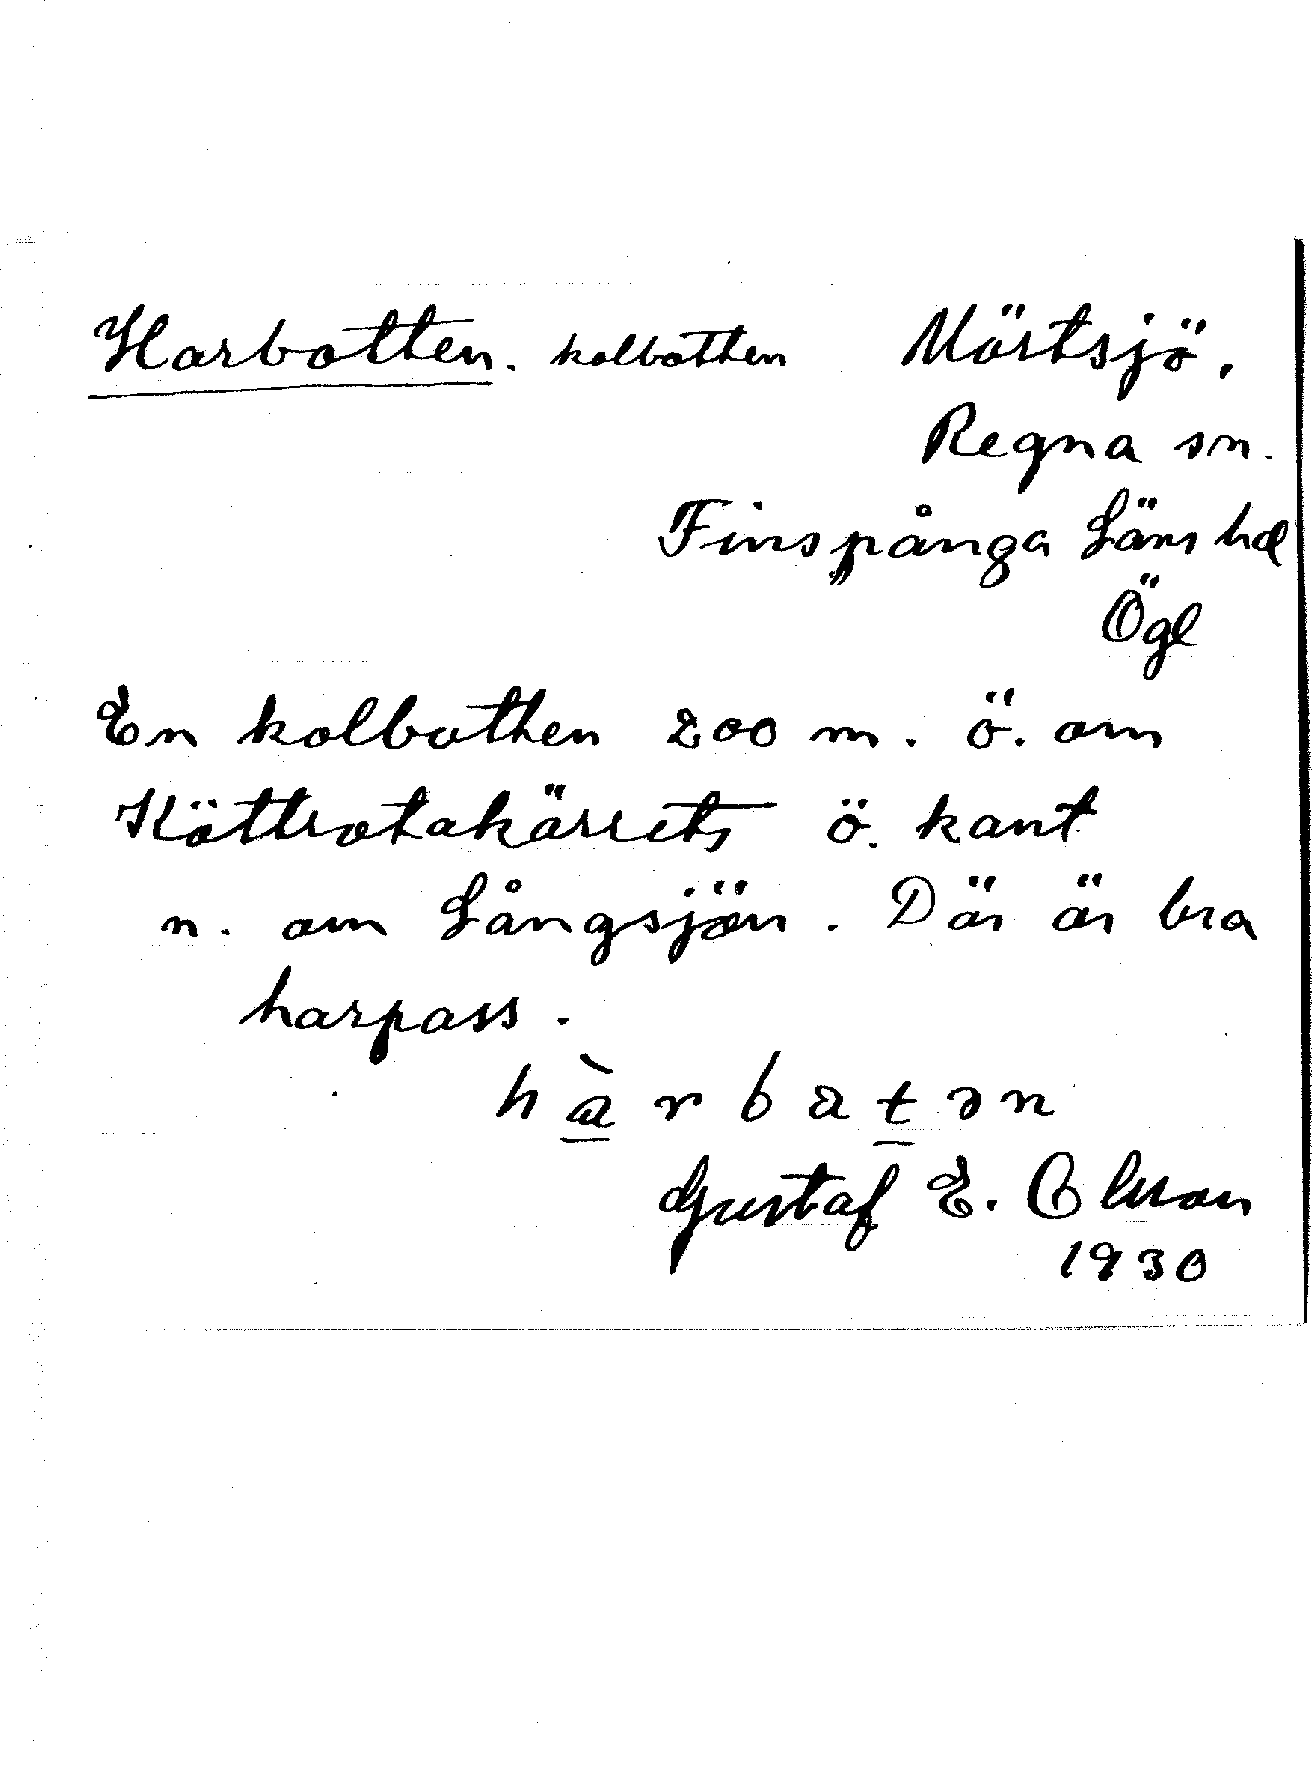 Harbotten. kolbotten Mörtsjö.
Regna sn.
Finspånga Läns hd
Ögl
En kolbotten 200 m. ö. om
Köttrotakärrets ö. kant
n. om Långsjön. Där är bra
harpass.
hàrbatən
Gustaf E. Olsson
1930